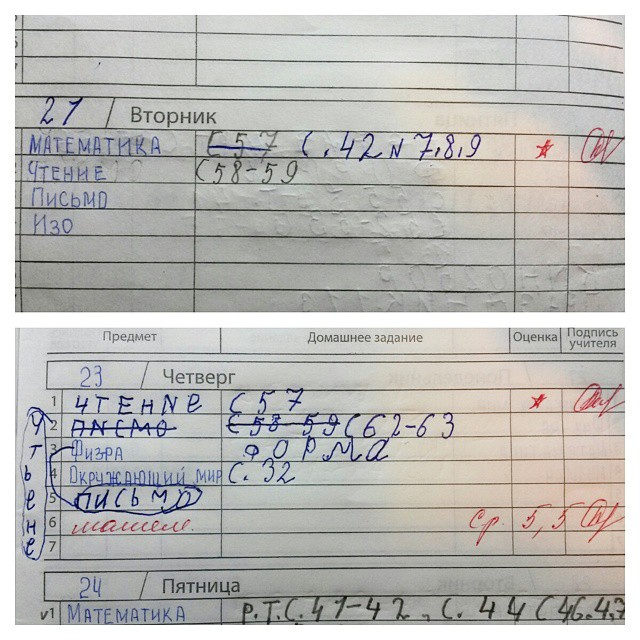 21 / Вторник
МАТЕМАТИКА С 57 С. 42 N 7,8,9
ЧТЕНИЕ С58-59
ПИСЬМО
ИЗО
Предмет Домашнее задание Оценка Подпись учителя
23 / Четверг
1 ЧТЕНNЕ С 57
2 ПNСМО С58-59 С62-63
3 ФИЗРА ФОРМА
4 ОКРУЖАЮЩИЙ МИР С. 32
5 ПИСЬМО
6 ср. 5,5
7
24 / Пятница
v1 МАТЕМАТИКА Р.Т.С.41-42, С. 44 С46.4,7